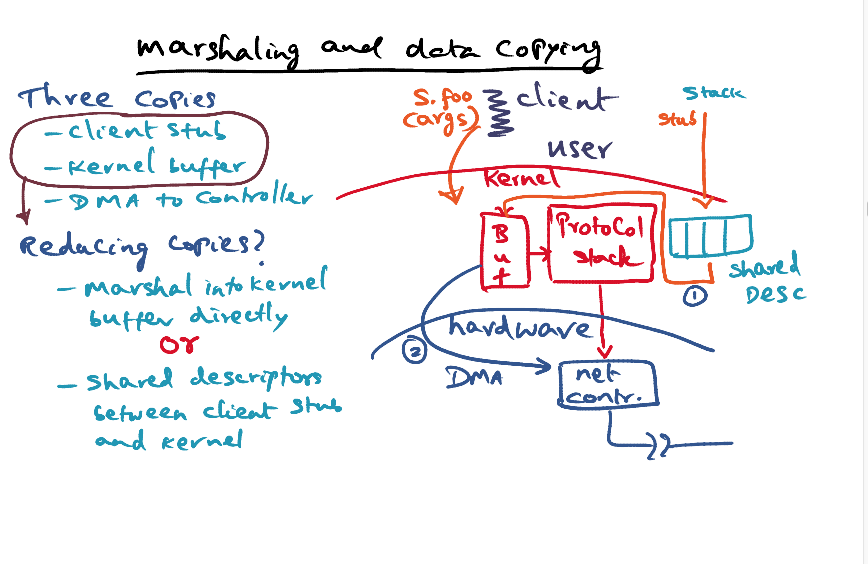 Marshaling and data copying
Three copies
- Client stub
- Kernel buffer
- DMA to controller
Reducing copies?
- Marshal into kernel
buffer directly
OR
- Shared descriptors
between client stub
and kernel
S.foo
(args)
client
user
Stack
stub
Kernel
Buf
Protocol
stack
shared
Desc
1
hardware
2
DMA
net
contr.